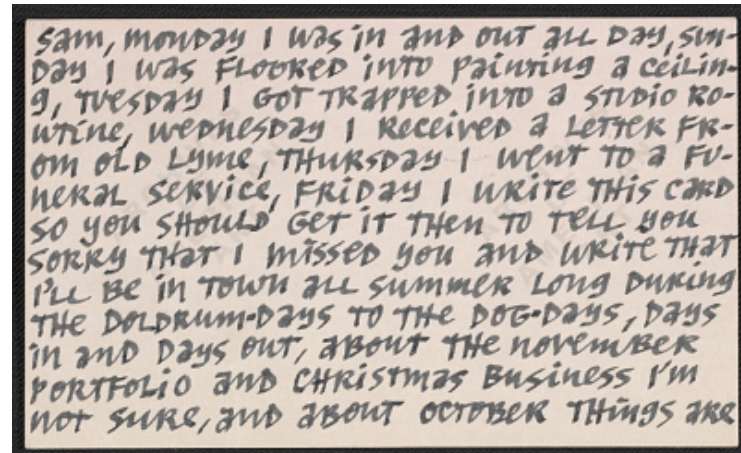 Sam, Monday I was in and out all day, Sun-
day I was flooked into painting a ceilin-
g, Tuesday I got trapped into a studio ro-
utine, Wednesday I received a letter fr-
om Old Lyme, Thursday I went to a fu-
neral service, Friday I write this card
so you should get it then to tell you
sorry that I missed you and write that
I'll be in town all summer long during
the doldrum-days to the dog-days, days
in and days out, about the November
portfolio and Christmas business I'm
not sure, and about October things are